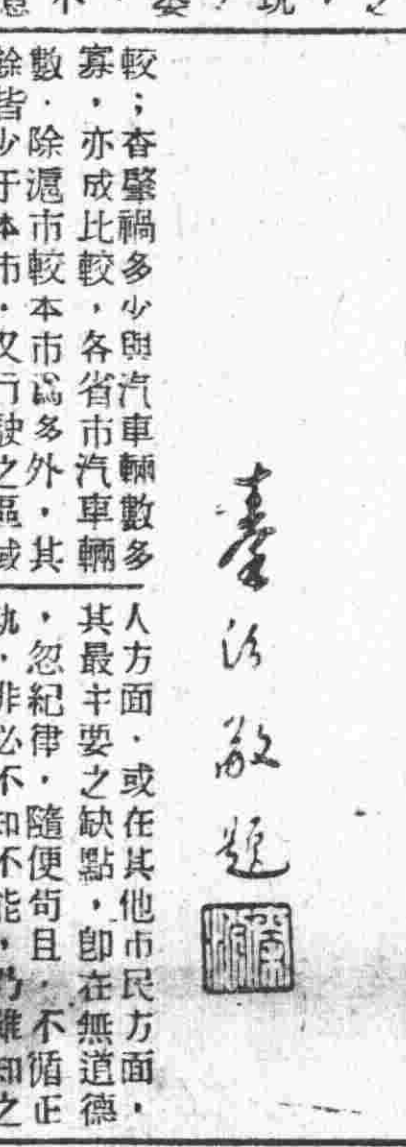 秦汾敬題
較；查肇禍多少與汽車輛數多
寡，亦成比較，各省市汽車輛
數．除滬市較本市爲多外，其
餘皆少于本市．又行駛之區域
人方面．或在其他市民方面，
其最主要之缺點，卽在無道德
，忽紀律，隨便苟且，不循正
軌，非必不知不能，乃雖知之